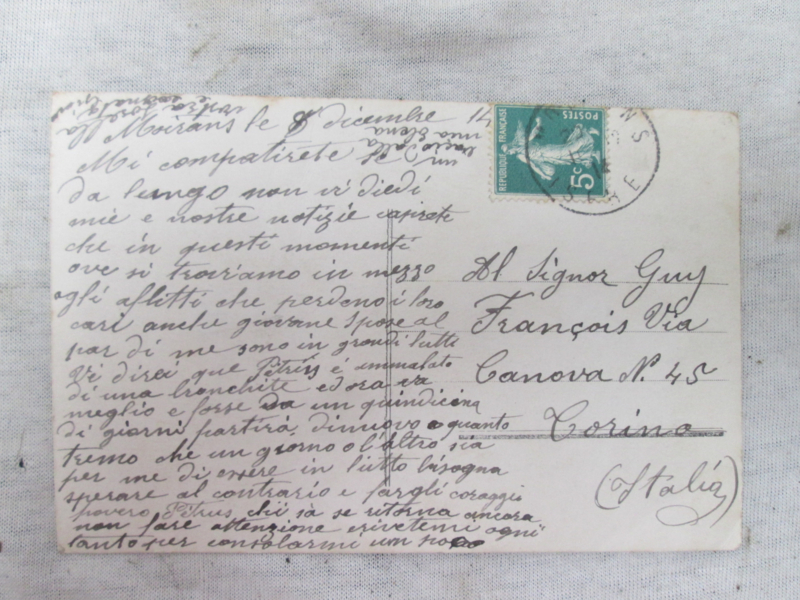 Moirans le 8 dicembre 14
Mi compatirete se
da lungo non vi diedi
mie e nostre notizie capirete
che in questi momenti
ove si troviamo in mezzo
agli aflitti che perdono i loro
cari anche giovane spose al
par di me sono in grandi lutti
Vi direi que Petrus é ammalato
di una bronchite ed ora va
meglio e forse da un quindicina
di giorni partirà dinuovo o quanto
tremo che un giorno o l'altro sia
per me di essere in lutto bisogna
sperare al contrario e fargli coraggio
povero Petrus chi sà se ritorna ancora
non fare attenzione crivetemi ogni
tanto per consolarmi un poco
un
bacio dalla
mia Elena
vostra
Al Signor Guy
François Via
Canova N. 45
Torino
(Italia)
REPUBLIQUE FRANÇAISE
POSTES
5c
ISERE